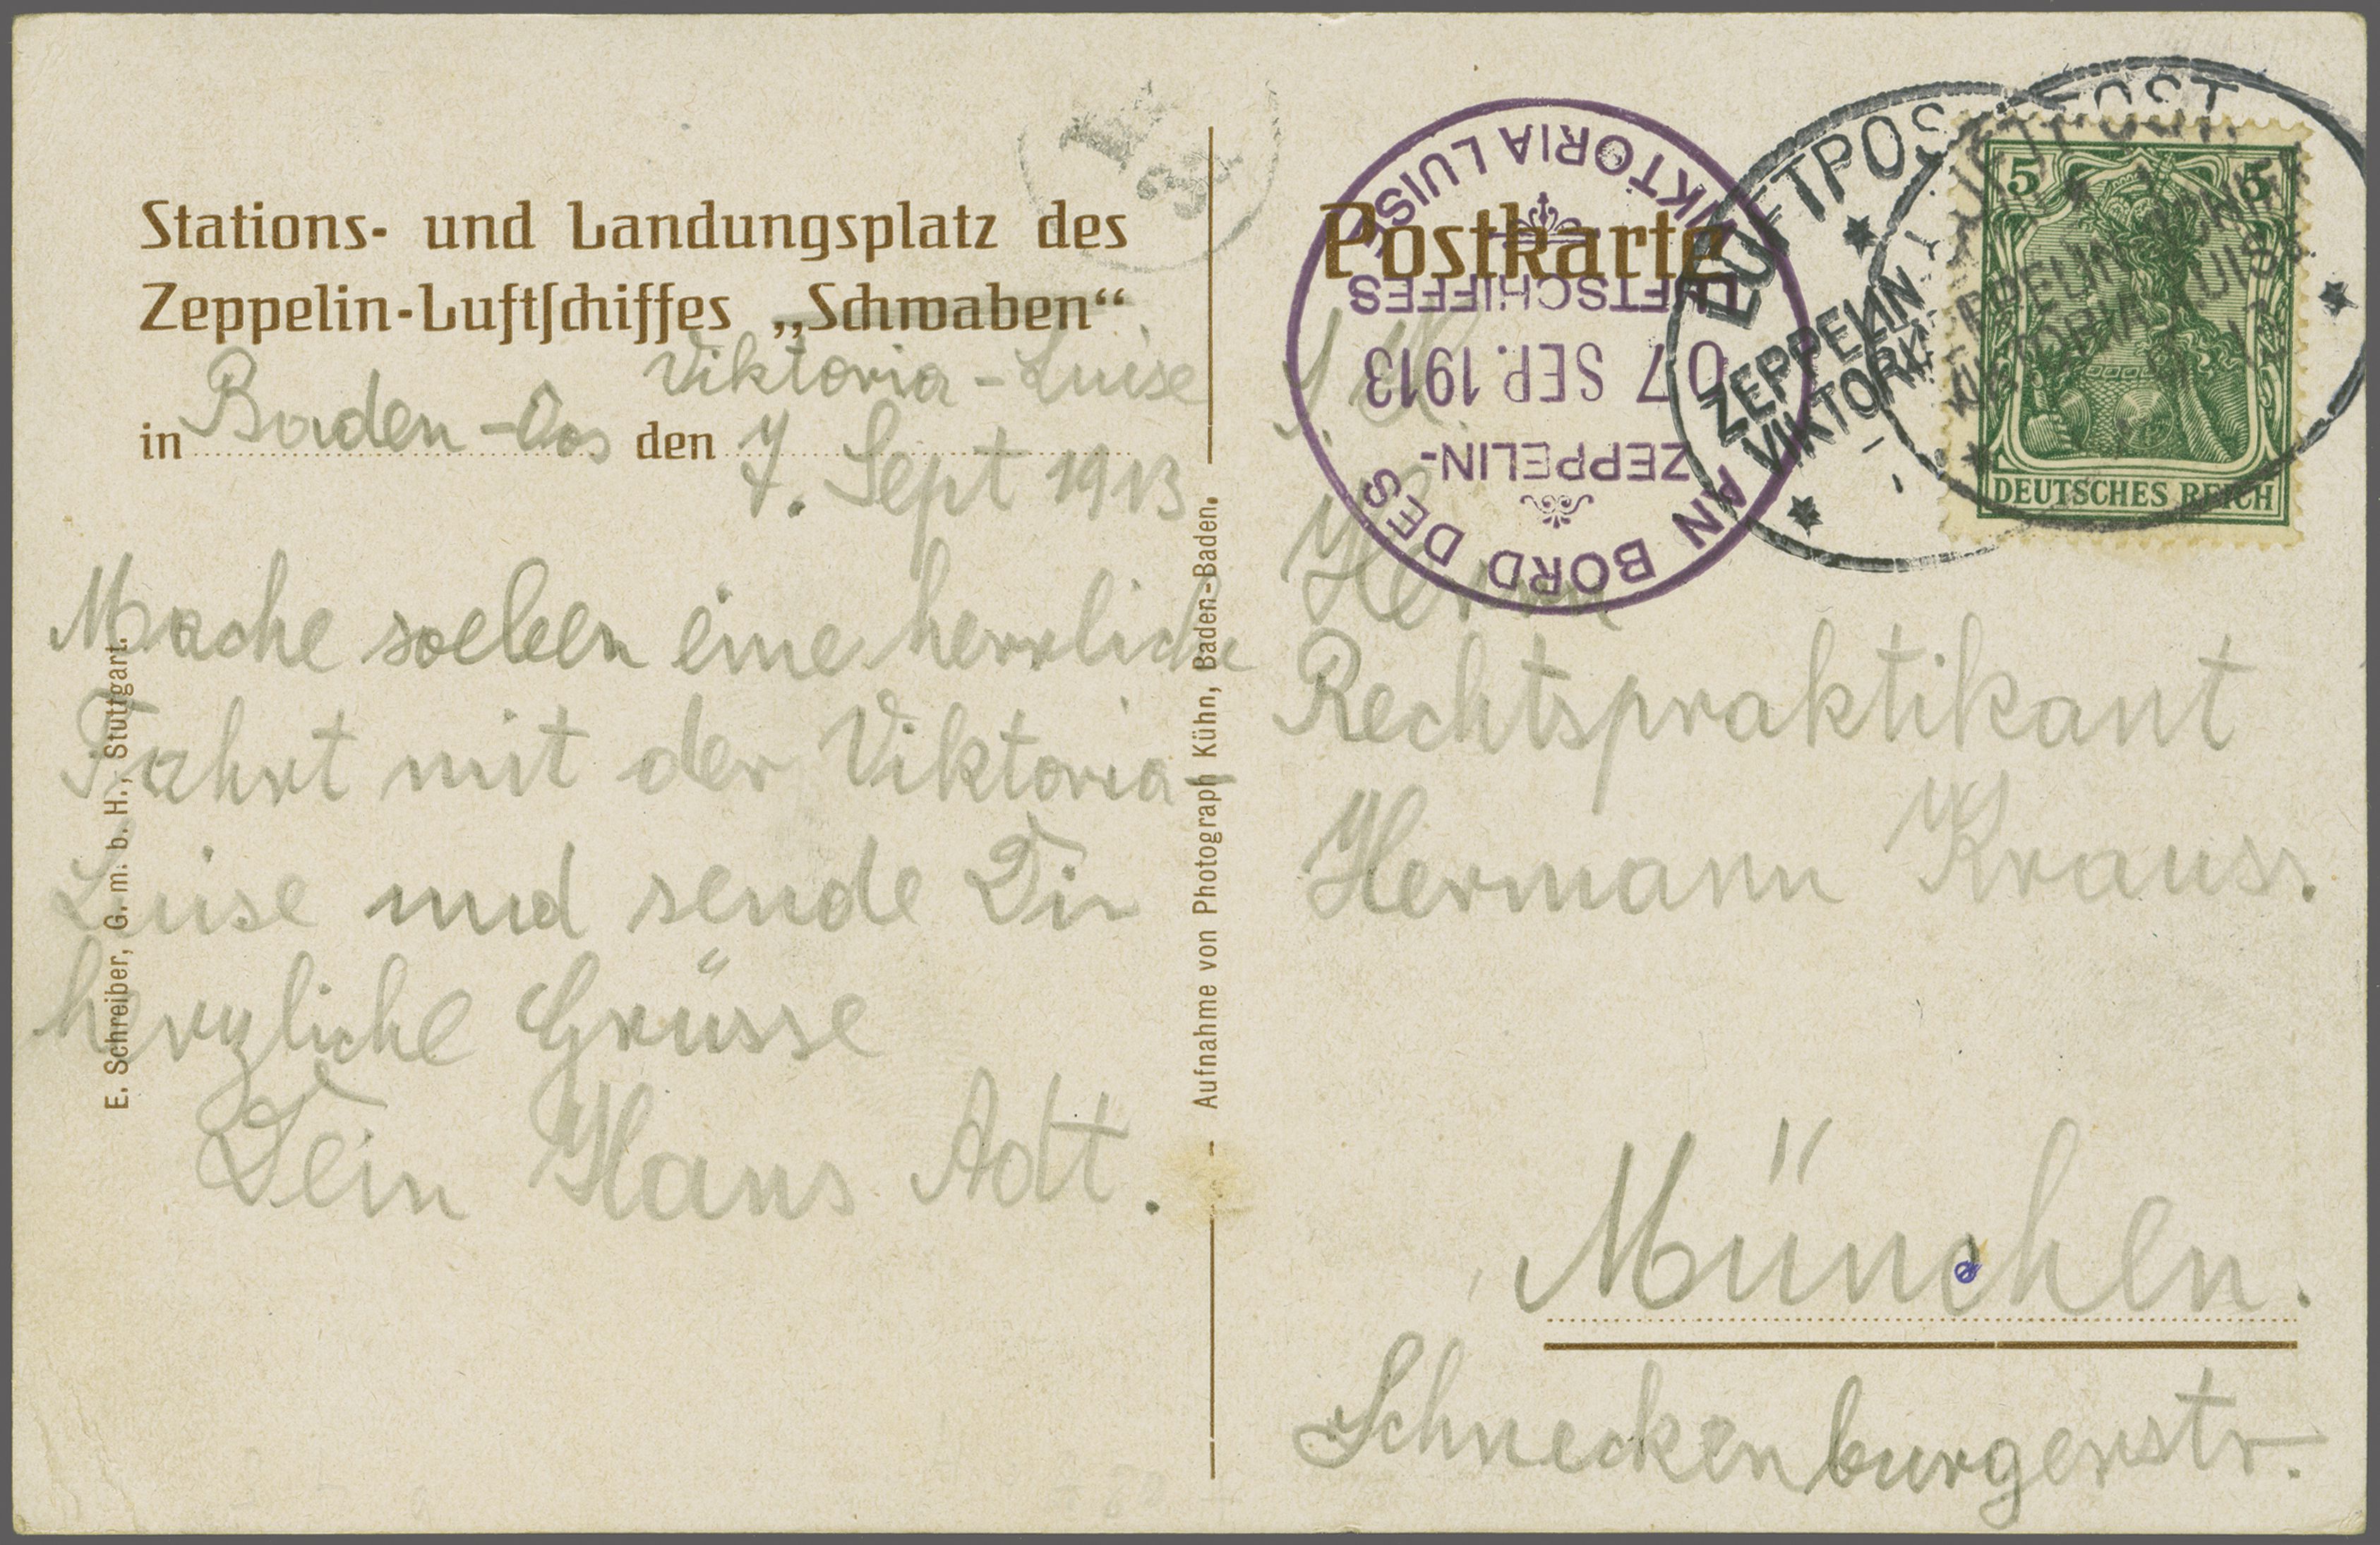 Stations- und Landungsplatz des
Zeppelin-Luftschiffes „Schwaben“
Viktoria-Luise
in Baden-Oos den 7. Sept 1913
Mache soeben eine herrliche
Fahrt mit der Viktoria-
Luise und sende Dir
herzliche Grüsse
Dein Hans Adt.
E. Schreiber, G. m. b. H., Stuttgart.
Aufnahme von Photograph Kühn, Baden-Baden.
Postkarte
AN BORD DES
ZEPPELIN-
07 SEP. 1913
LUFTSCHIFFES
VIKTORIA LUISE
LUFTPOST
ZEPPELIN
VIKTORIA
LUFTPOST
VIKTORIA LUISE
5 5
DEUTSCHES REICH
Herrn
Rechtspraktikant
Hermann Krauss.
München.
Schneckenburgerstr.